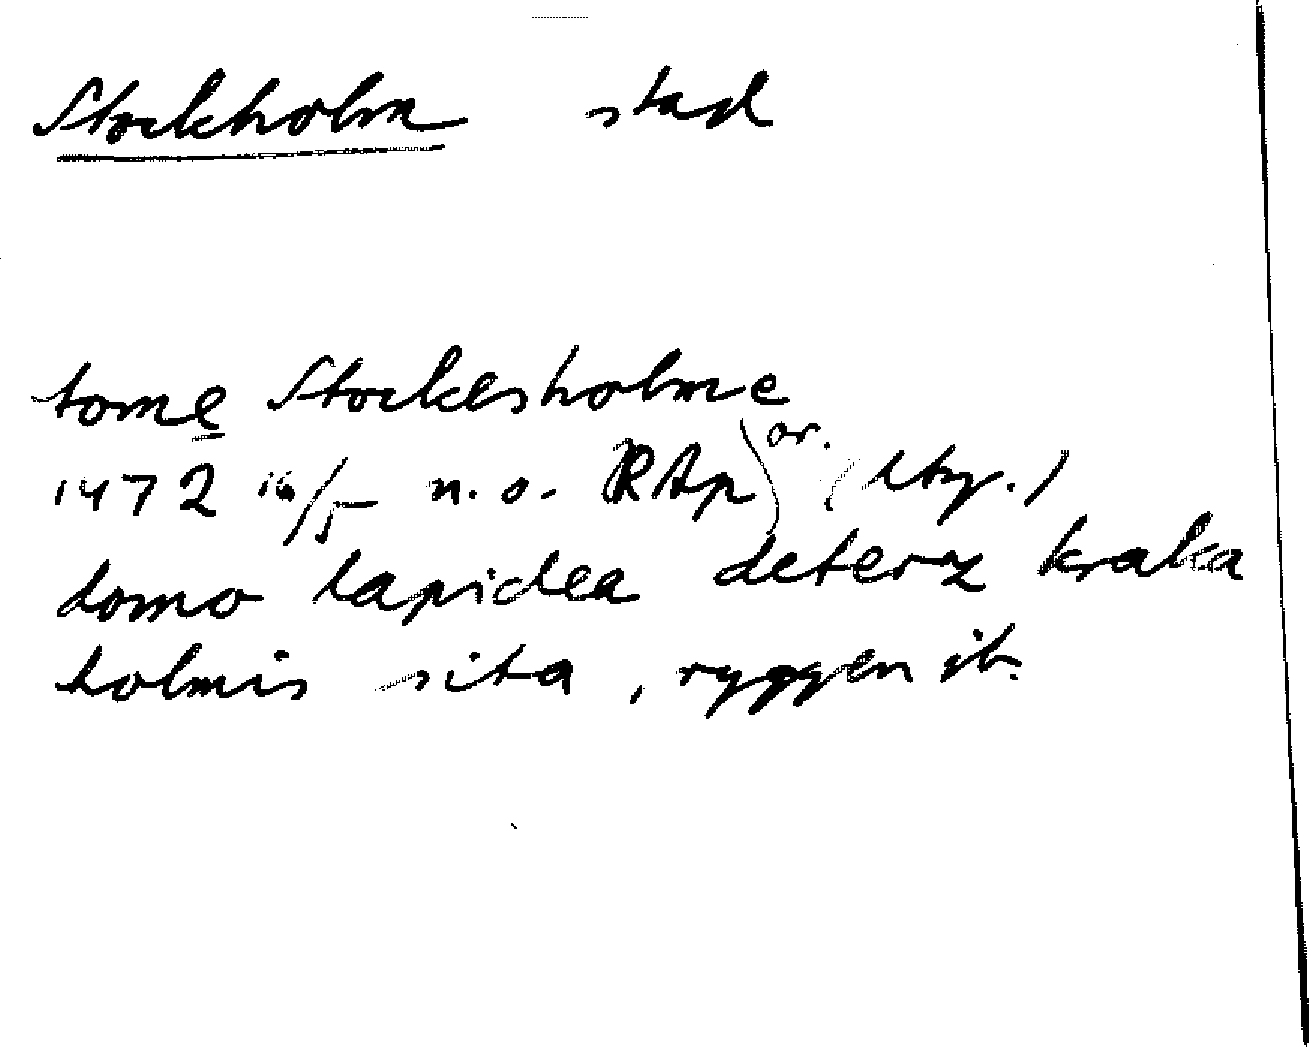 Stockholm stad
tome Stockesholme
1472 16/5 n.o. RAp or. (Utg.)
domo lapidea deterx kraka
holmis sita, ryggen ib.